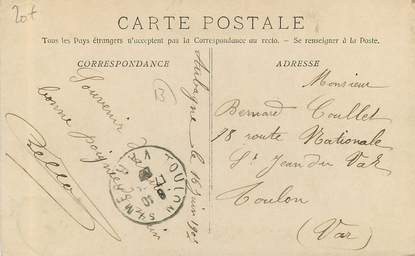 20f
CARTE POSTALE
Tous les Pays étrangers n'acceptent pas la Correspondance au recto. — Se renseigner à la Poste.
CORRESPONDANCE
ADRESSE
Aubagne le 16 juin 190
Souvenir
bonne poignée de main
13
TOULON S/ MER
VAR
Monsieur
Bernard Coullet
18 route Nationale
St Jean du Var
Toulon
(Var)